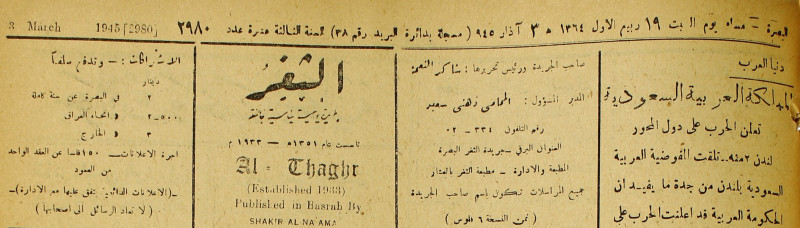 البصرة — مساء يوم السبت ١٩ ربيع الاول ١٣٦٤ ه ٣ آذار ٩٤٥ ( مسجلة بدائرة البريد رقم ٣٨) السنة الثالثة عشرة عدد ٢٩٨٠
3 March 1945 [2980]
دنيا العرب
المملكة العربية السعودية
تعلن الحرب على دول المحور
لندن ٢ منه.. تلقت المفوضية العربية
السعودية بلندن من جدة ما يفيد ان
الحكومة العربية قد اعلنت الحرب على
صاحب الجريدة ورئيس تحريرها : شاكر النعمة
المدير المسؤول : المحامي زهني سعيد
رقم التلفون ٣٣٤ — ٠٢
العنوان البرقي — جريدة الثغر البصرة
المطبعة والادارة — مطبعة الثغر بالعشار
جميع المراسلات تكون باسم صاحب الجريدة
( ثمن النسخة ٦ فلوس )
الثغر
جريدة يومية سياسية جامعة
تأسست عام ١٣٥١ه — ١٩٣٣ م
Al - Thaghr
(Established 1933)
Published in Basrah By
SHAKIR AL NAAMA
الاشتراكات : — وتدفع سلفاً
دينار
٢ في البصرة عن سنة كاملة
٥٠٠ر٢ » انحاء العراق
٣ » الخارج
اجرة الاعلانات — ١٥٠ فلسا عن العقد الواحد
من العمود
—(الاعلانات الدائمية يتفق عليها مع الادارة)—
( لا تعاد الرسائل الى اصحابها )